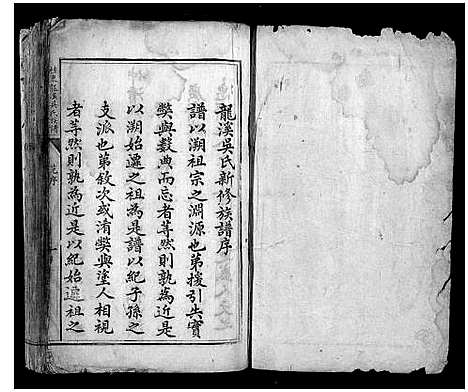 龍溪吳氏新修族譜序
譜以溯祖宗之淵源也第援引失實
獘與數典而忘者等然則孰為近是
以溯始遷之祖為是譜以紀子孫之
支派也第敘次或淆獘與塗人相視
者等然則孰為近是以紀始遷祖之